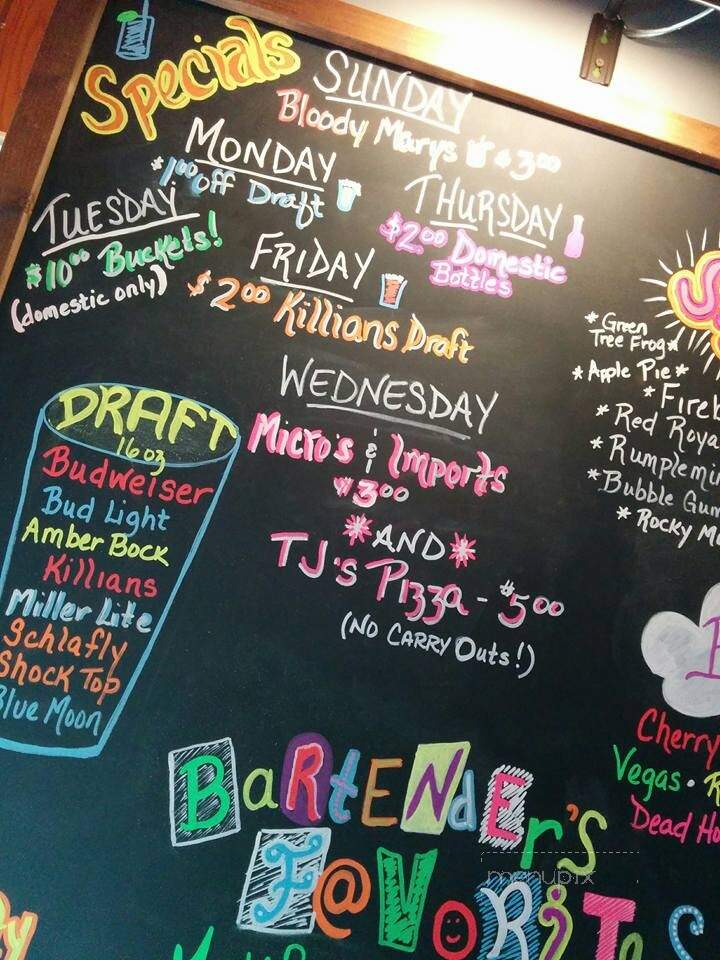 Specials
SUNDAY
Bloody Marys $3.00
MONDAY
$1.00 off Draft
TUESDAY
$10.00 Buckets!
(domestic only)
THURSDAY
$2.00 Domestic
Bottles
FRIDAY
$2.00 Killians Draft
WEDNESDAY
Micro's & Imports
$3.00
*AND*
TJ's Pizza - $5.00
(NO CARRY Outs!)
DRAFT
16oz
Budweiser
Bud Light
Amber Bock
Killians
Miller Lite
Schlafly
Shock Top
Blue Moon
*Green
Tree Frog*
*Apple Pie*
*Fireb
*Red Roya
*Rumplemin
*Bubble Gum
*Rocky Mo
Cherry
Vegas • R
Dead Ho
BaRtENdEr'S
F@VORiTes
menupix